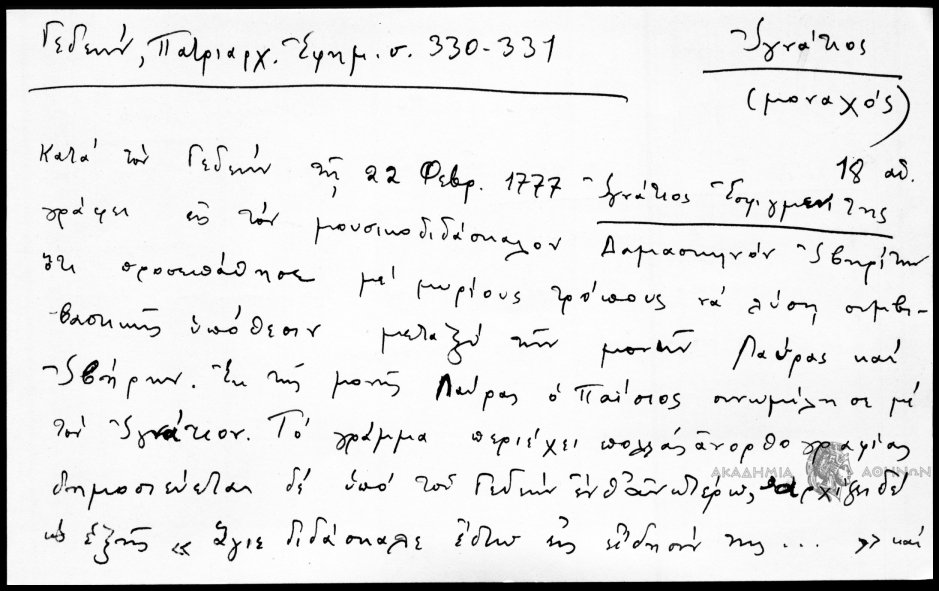 Γεδεών, Πατριαρχ. Ἐφημ. σ. 330-331
Ἰγνάτιος
(μοναχός)
18 αἰ.
Κατά τόν Γεδεών τῇ 22 Φεβρ. 1777 Ἰγνάτιος Ἐσφιγμενίτης
γράφει εἰς τόν μουσικοδιδάσκαλον Δαμασκηνόν Ἰβηρίτην
ὅτι προσεπάθησε μέ μυρίους τρόπους νά λύσῃ συμβι-
βαστικῶς ὑπόθεσιν μεταξύ τῶν μονῶν Λαύρας καί
Ἰβήρων. Ἐκ τῆς μονῆς Λαύρας ὁ Παΐσιος συνωμίλησε μέ
τόν Ἰγνάτιον. Τό γράμμα περιέχει πολλάς ἀνορθογραφίας
δημοσιεύεται δέ ὑπό τοῦ Γεδεών ἔνθ' ἀνωτέρω, ἀρχίζει δέ
ὡς ἑξῆς « Ἅγιε διδάσκαλε ἔστω εἰς εἴδησίν της ... » καί
ΑΚΑΔΗΜΙΑ ΑΘΗΝΩΝ